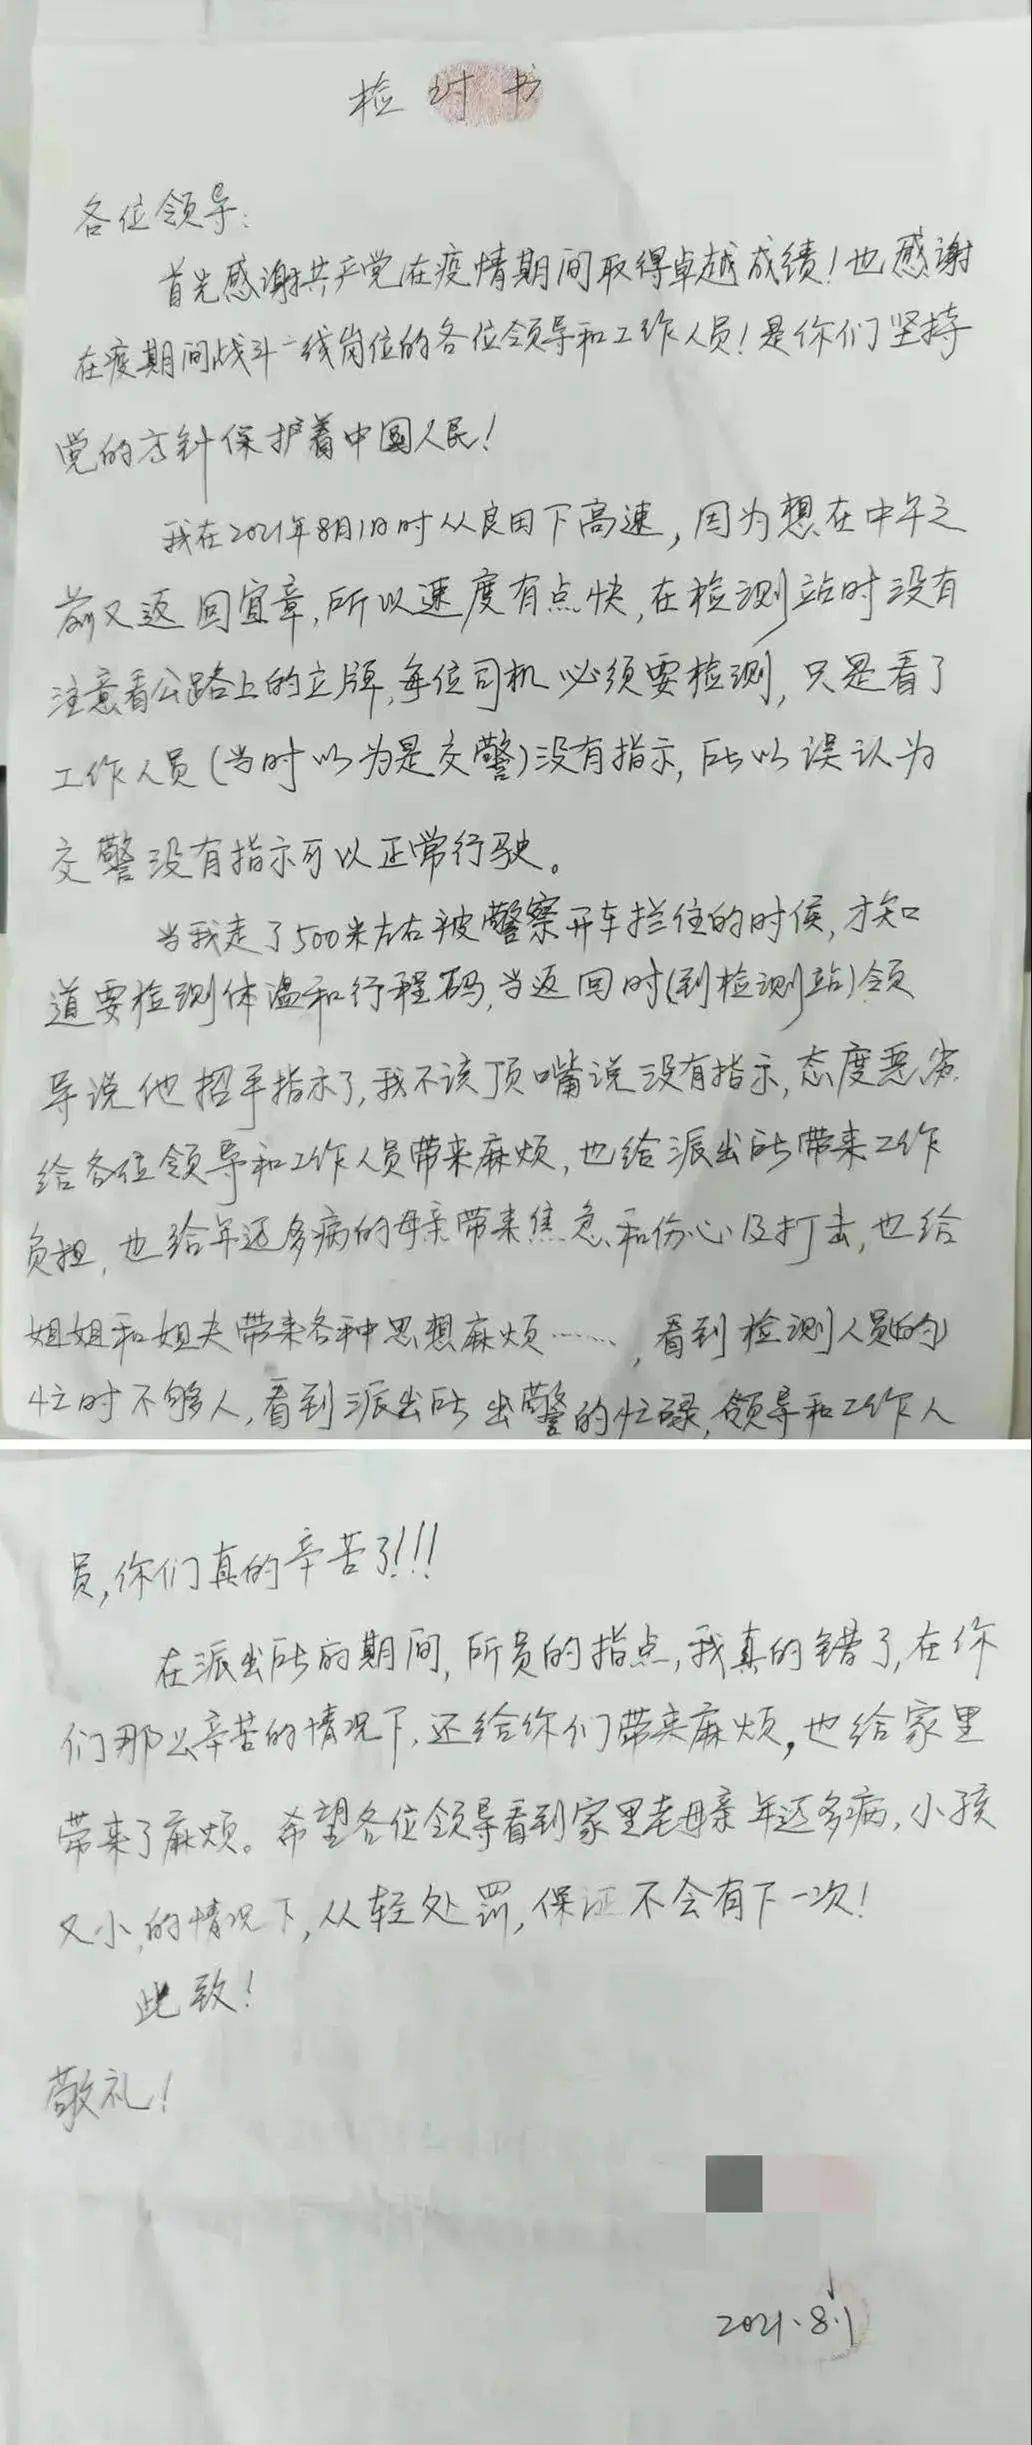 检讨书
各位领导:
首先感谢共产党在疫情期间取得卓越成绩!也感谢
在疫期间战斗一线岗位的各位领导和工作人员!是你们坚持
党的方针保护着中国人民!
我在2021年8月1日时从良田下高速,因为想在中午之
前又返回宜章,所以速度有点快,在检测站时没有
注意看公路上的立牌,每位司机必须要检测,只是看了
工作人员(当时以为是交警)没有指示,所以误认为
交警没有指示可以正常行驶。
当我走了500米左右被警察开车拦住的时候,才知
道要检测体温和行程码,当返回时(到检测站)领
导说他招手指示了,我不该顶嘴说没有指示,态度恶劣
给各位领导和工作人员带来麻烦,也给派出所带来工作
负担,也给年迈多病的母亲带来焦急和伤心及打击,也给
姐姐和姐夫带来各种思想麻烦……,看到检测人员的
忙时不够人,看到派出所出警的忙碌,领导和工作人
员,你们真的辛苦了!!!
在派出所的期间,所员的指点,我真的错了,在你
们那么辛苦的情况下,还给你们带来麻烦,也给家里
带来了麻烦。希望各位领导看到家里老母亲年迈多病,小孩
又小,的情况下,从轻处罚,保证不会有下一次!
此致!
敬礼!
2021.8.1